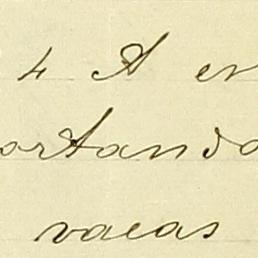 4 A en
ortando
vacas